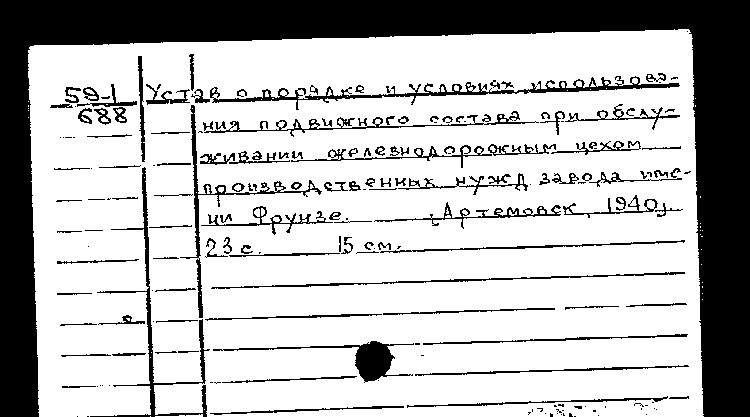 59-1 Устав о порядке и условиях использова-
688
ния подвижного состава при обслу-
живании железнодорожным цехом
производственных нужд завода име-
ни Фрунзе. [Артемовск, 1940].
23 с. 15 см.